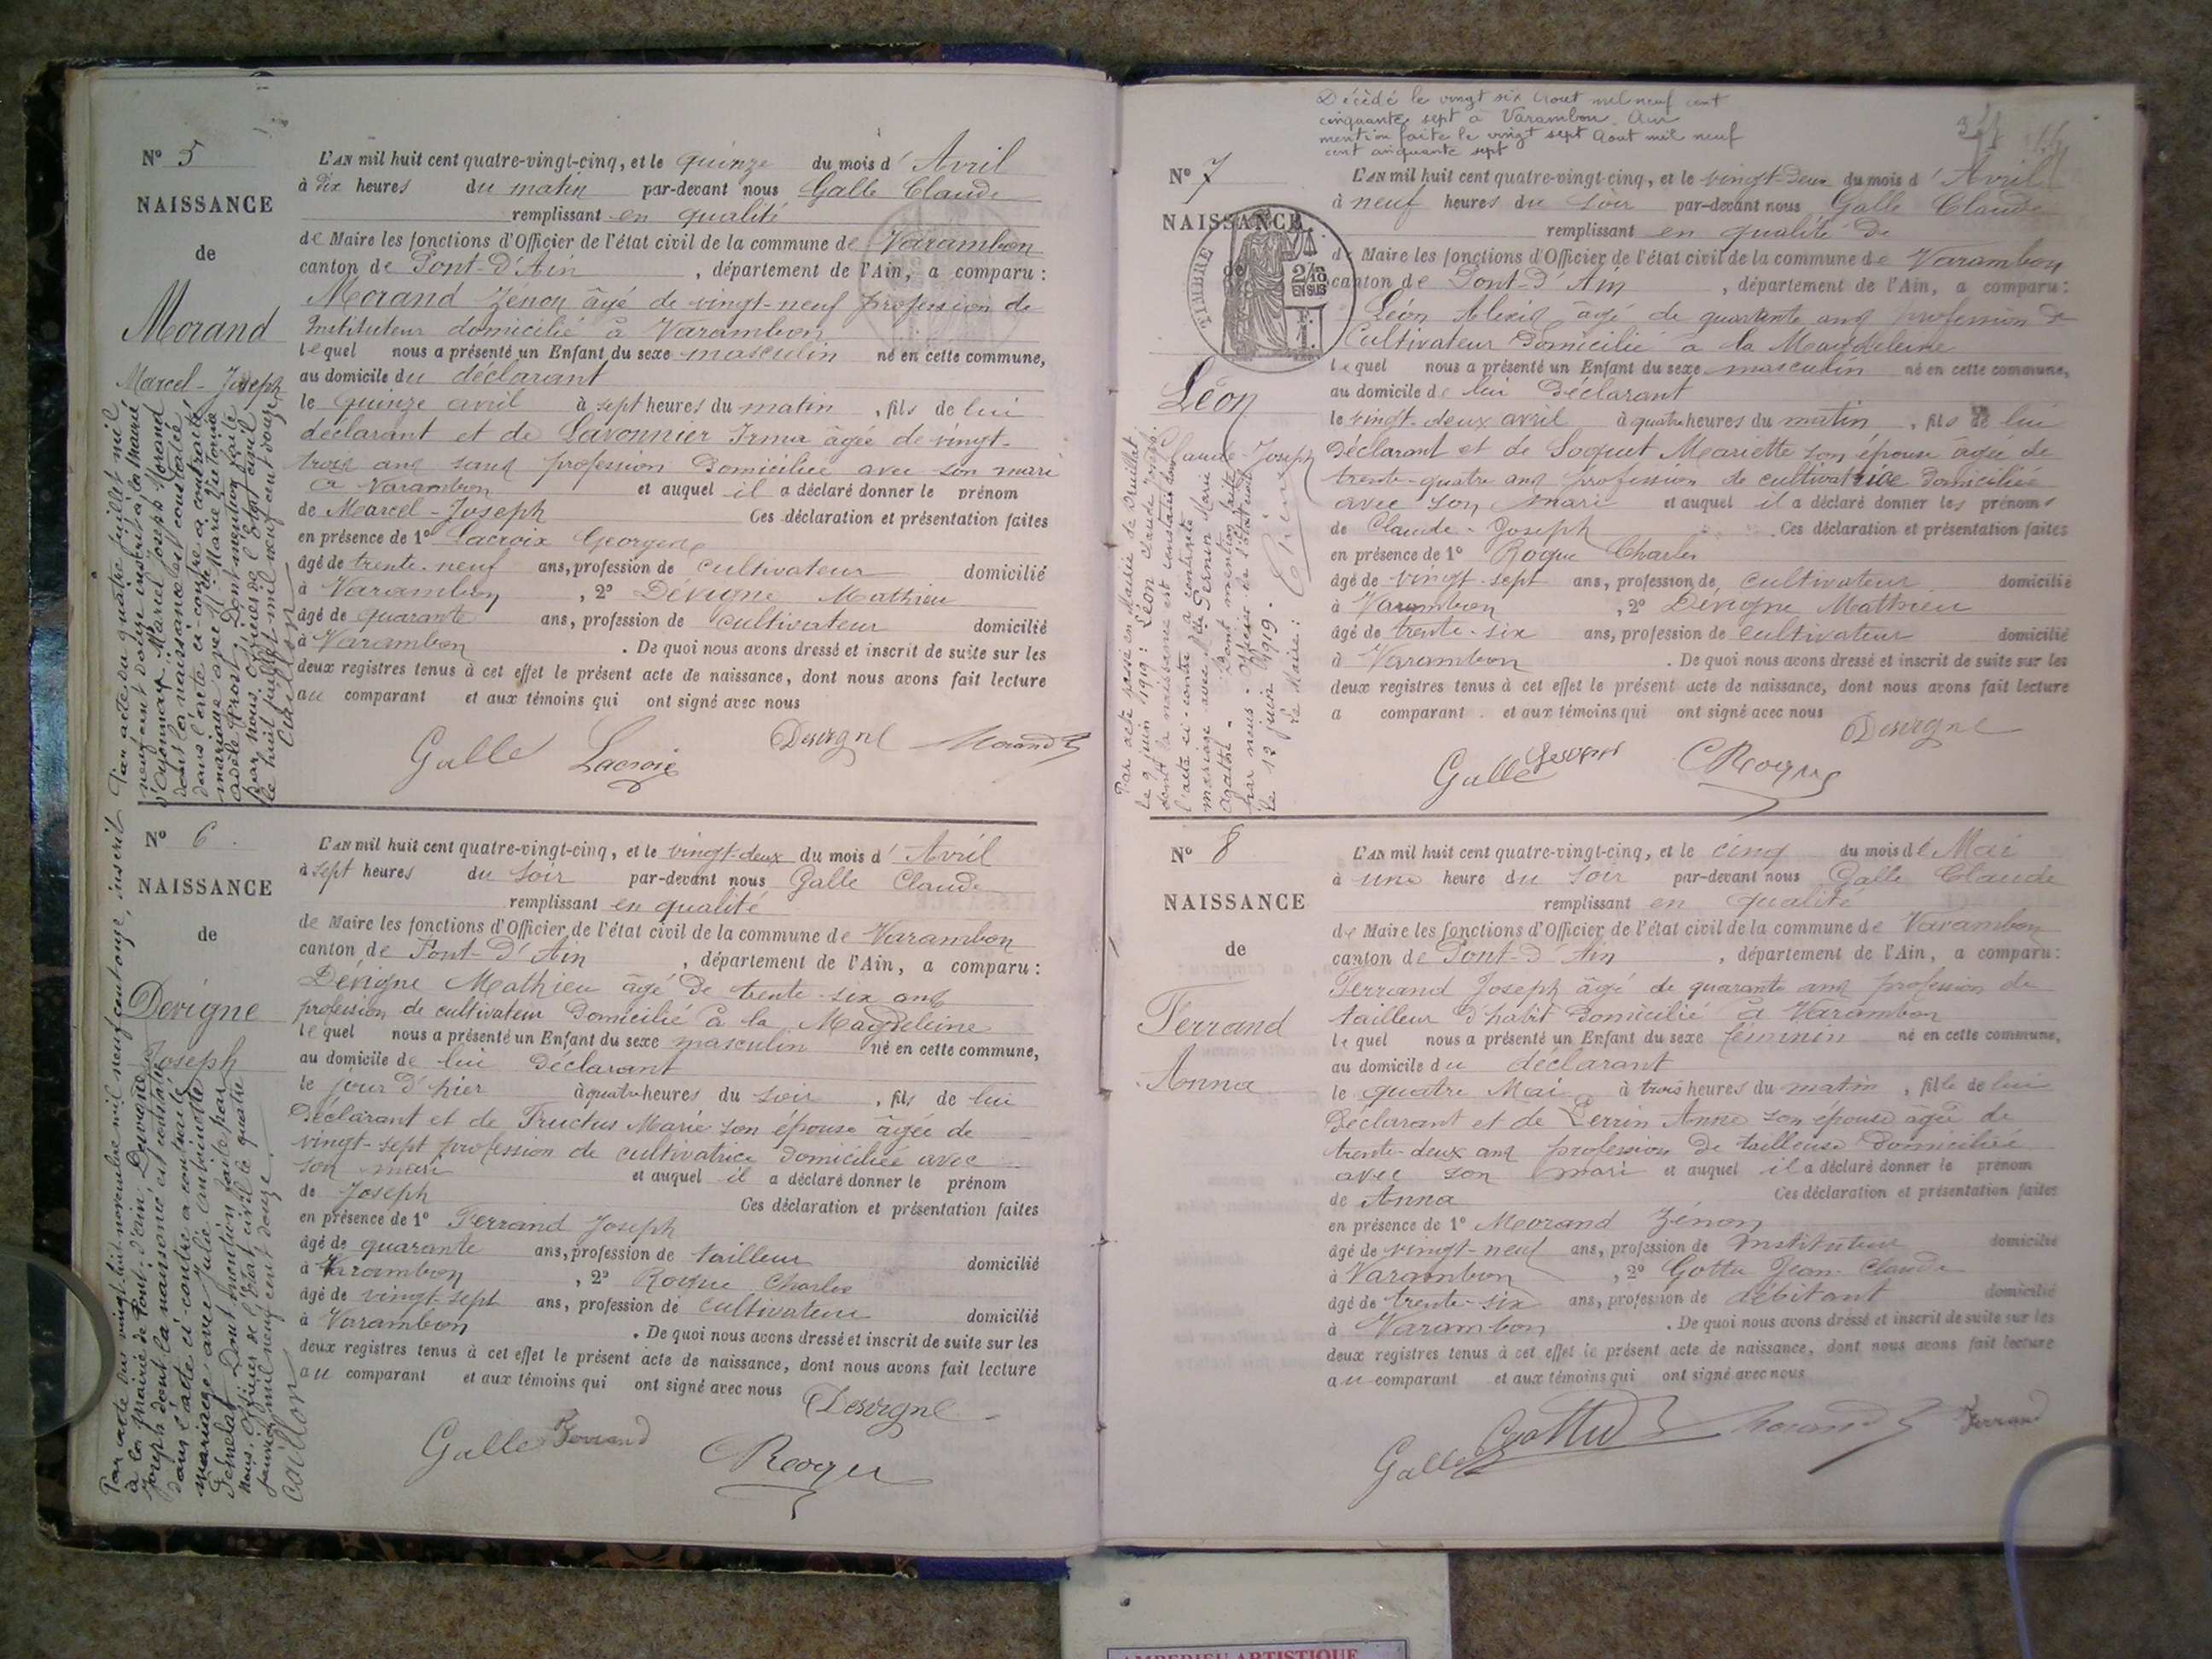 Nº 5
NAISSANCE
de
Morand
Marcel-Joseph
L'AN mil huit cent quatre-vingt-cinq, et le quinze du mois d'Avril
à dix heures du matin par-devant nous Galle Claude
remplissant en qualité
de Maire les fonctions d'Officier de l'état civil de la commune de Varambon
canton de Pont-d'Ain, département de l'Ain, a comparu :
Morand Zénon âgé de vingt-neuf profession de
Instituteur domicilié à Varambon
lequel nous a présenté un Enfant du sexe masculin né en cette commune,
au domicile du déclarant
le quinze avril à sept heures du matin, fils de lui
déclarant et de Lavonnier Irma âgée de vingt-
trois ans sans profession domiciliée avec son mari
à Varambon et auquel il a déclaré donner le prénom
de Marcel-Joseph Ces déclaration et présentation faites
en présence de 1º Lacroix Georges
âgé de trente-neuf ans, profession de cultivateur domicilié
à Varambon, 2º Dévigne Mathieu
âgé de quarante ans, profession de cultivateur domicilié
à Varambon. De quoi nous avons dressé et inscrit de suite sur les
deux registres tenus à cet effet le présent acte de naissance, dont nous avons fait lecture
au comparant et aux témoins qui ont signé avec nous
Galle Lacroix Desvigne Morand Z
Par acte du quatre juillet mil
neuf cent douze inscrit à la mairie
d'Oyonnax, Marcel Joseph Morand
dont la naissance est constatée
dans l'acte ci-contre a contracté
mariage avec Marie
adèle Prost. Dont mention faite
par nous, officier de l'état civil
le huit juillet mil neuf cent douze
Caillon
Nº 6
NAISSANCE
de
Dévigne
Joseph
L'AN mil huit cent quatre-vingt-cinq, et le vingt-deux du mois d'Avril
à sept heures du soir par-devant nous Galle Claude
remplissant en qualité
de Maire les fonctions d'Officier de l'état civil de la commune de Varambon
canton de Pont-d'Ain, département de l'Ain, a comparu :
Dévigne Mathieu âgé de trente-six ans
profession de cultivateur domicilié à la Magdeleine
lequel nous a présenté un Enfant du sexe masculin né en cette commune,
au domicile de lui déclarant
le jour d'hier à quatre heures du soir, fils de lui
déclarant et de Fructus Marie son épouse âgée de
vingt-sept profession de cultivatrice domiciliée avec
son mari et auquel il a déclaré donner le prénom
de Joseph Ces déclaration et présentation faites
en présence de 1º Ferrand Joseph
âgé de quarante ans, profession de tailleur domicilié
à Varambon, 2º Roque Charles
âgé de vingt-sept ans, profession de cultivateur domicilié
à Varambon. De quoi nous avons dressé et inscrit de suite sur les
deux registres tenus à cet effet le présent acte de naissance, dont nous avons fait lecture
au comparant et aux témoins qui ont signé avec nous
Galle Ferrand Roque Desvigne
Par acte du vingt huit novembre mil neuf cent onze, inscrit
à la mairie de Pont-d'ain, Desvigne
Joseph dont la naissance est constatée
dans l'acte ci-contre a contracté
mariage avec Julie Antoinette
Dont mention faite par
nous, officier de l'état civil le quatre
janvier mil neuf cent douze.
Caillon
Décédé le vingt six Aout mil neuf cent
cinquante sept à Varambon Ain
mention faite le vingt sept Aout mil neuf
cent cinquante sept
Nº 7
NAISSANCE
de
TIMBRE
2/10
EN SUS
Léon
Claude-Joseph
L'AN mil huit cent quatre-vingt-cinq, et le vingt-deux du mois d'Avril
à neuf heures du soir par-devant nous Galle Claude
remplissant en qualité de
de Maire les fonctions d'Officier de l'état civil de la commune de Varambon
canton de Pont-d'Ain, département de l'Ain, a comparu :
Léon Alexis âgé de quarante ans profession de
Cultivateur domicilié à la Magdeleine
lequel nous a présenté un Enfant du sexe masculin né en cette commune,
au domicile de lui déclarant
le vingt-deux avril à quatre heures du matin, fils de lui
déclarant et de Soquet Mariette son épouse âgée de
trente-quatre ans profession de cultivatrice domiciliée
avec son mari et auquel il a déclaré donner les prénoms
de Claude-Joseph. Ces déclaration et présentation faites
en présence de 1º Roque Charles
âgé de vingt-sept ans, profession de cultivateur domicilié
à Varambon, 2º Dévigne Mathieu
âgé de trente-six ans, profession de cultivateur domicilié
à Varambon. De quoi nous avons dressé et inscrit de suite sur les
deux registres tenus à cet effet le présent acte de naissance, dont nous avons fait lecture
a comparant et aux témoins qui ont signé avec nous
Galle Roque Desvigne
Par acte passé en Mairie de Druillat
le 9 juin 1919 : Léon Claude Joseph
dont la naissance est constatée dans
l'acte ci-contre a contracté
mariage avec Mlle Pernin Marie
Agathe. Dont mention faite
par nous, Officier de l'état civil
le 12 juin 1919.
Le Maire :
Nº 8
NAISSANCE
de
Ferrand
Anna
L'AN mil huit cent quatre-vingt-cinq, et le cinq du mois de Mai
à une heure du soir par-devant nous Galle Claude
remplissant en qualité
de Maire les fonctions d'Officier de l'état civil de la commune de Varambon
canton de Pont-d'Ain, département de l'Ain, a comparu :
Ferrand Joseph âgé de quarante ans profession de
tailleur d'habit domicilié à Varambon
lequel nous a présenté un Enfant du sexe féminin né en cette commune,
au domicile du déclarant
le quatre Mai à trois heures du matin, fille de lui
déclarant et de Perrin Anne son épouse âgée de
trente-deux ans profession de tailleuse domiciliée
avec son mari et auquel il a déclaré donner le prénom
de Anna Ces déclaration et présentation faites
en présence de 1º Morand Zénon
âgé de vingt-neuf ans, profession de Instituteur domicilié
à Varambon, 2º Gottu Jean-Claude
âgé de trente-six ans, profession de débitant domicilié
à Varambon. De quoi nous avons dressé et inscrit de suite sur les
deux registres tenus à cet effet le présent acte de naissance, dont nous avons fait lecture
au comparant et aux témoins qui ont signé avec nous
Galle Gottu Morand Z Ferrand
AMBERIEU ARTISTIQUE